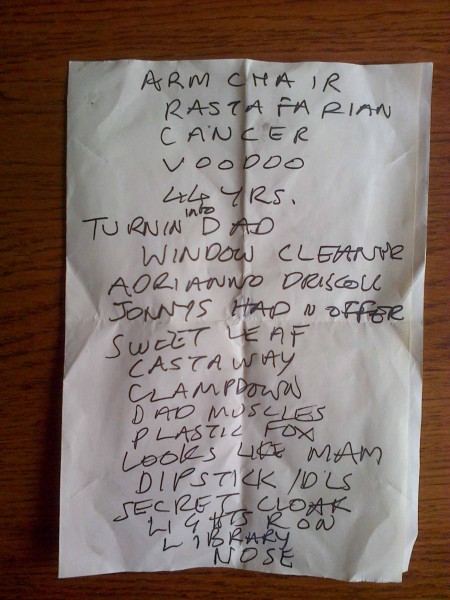 ARM CHAIR
RASTAFARIAN
CANCER
VOODOO
44 YRS.
TURNIN into DAD
WINDOW CLEANER
ADRIANNO DRISCOLL
JONNYS HAD N OFFER
SWEET LEAF
CASTAWAY
CLAMPDOWN
DAD MUSCLES
PLASTIC FOX
LOOKS LIKE MAM
DIPSTICK / DLS
SECRET CLOAK
LIGHTS R ON
LIBRARY
NOSE